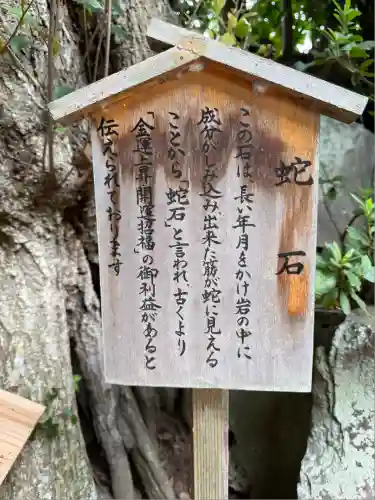 蛇石
この石は、長い年月をかけ岩の中に
成分がしみ込み、出来た筋が蛇に見える
ことから「蛇石」と言われ、古くより
「金運上昇・開運招福」の御利益があると
伝えられております